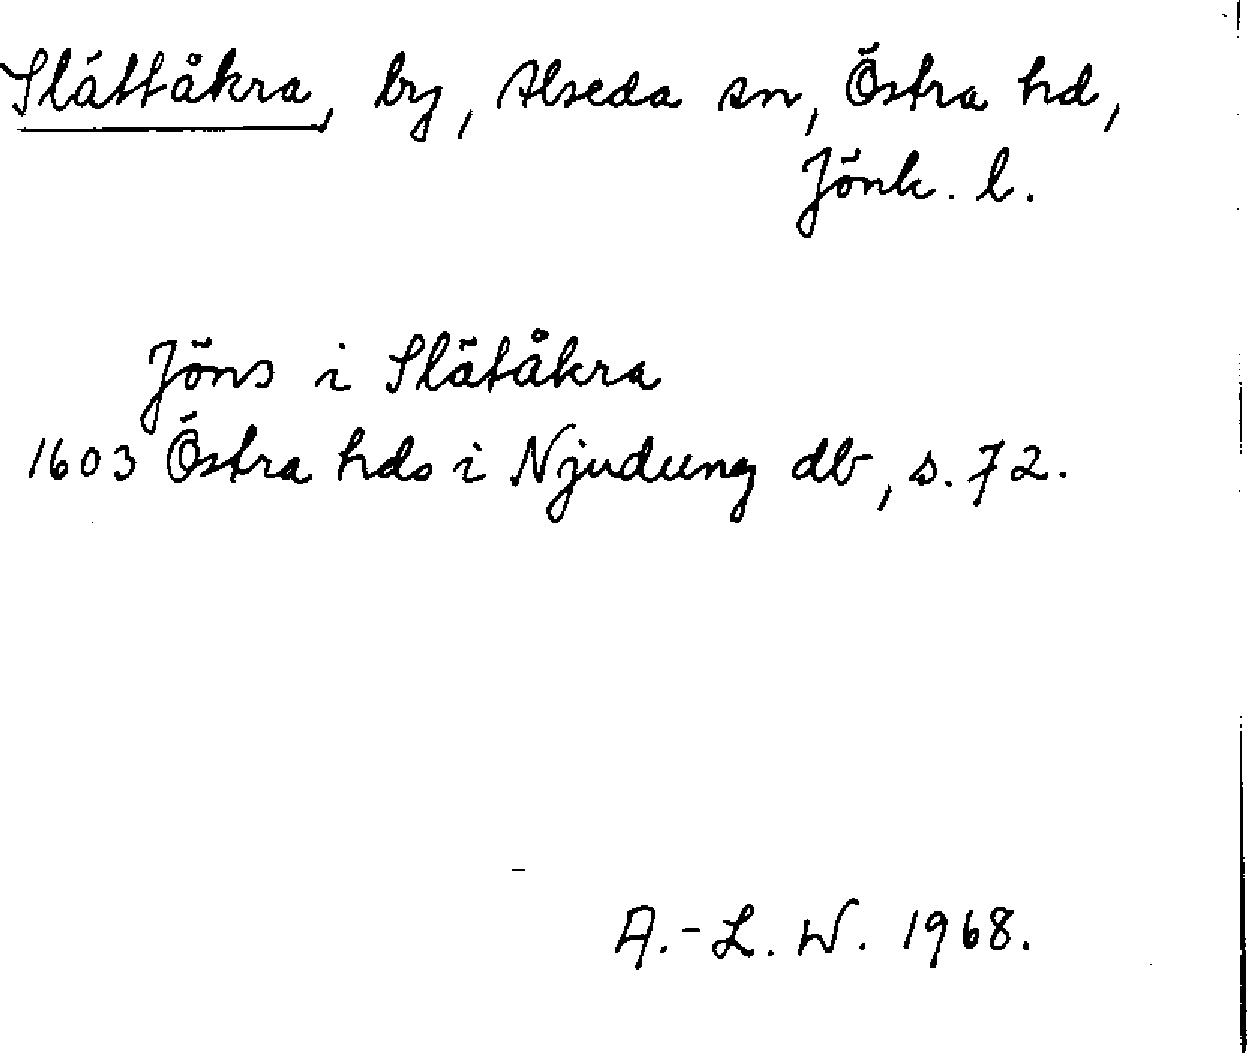 Slättåkra, by, Alseda sn, Östra hd,
Jönk. l.
Jöns i Slätåkra
1603 Östra hds i Njudung db, s. 72.
A.-L. W. 1968.